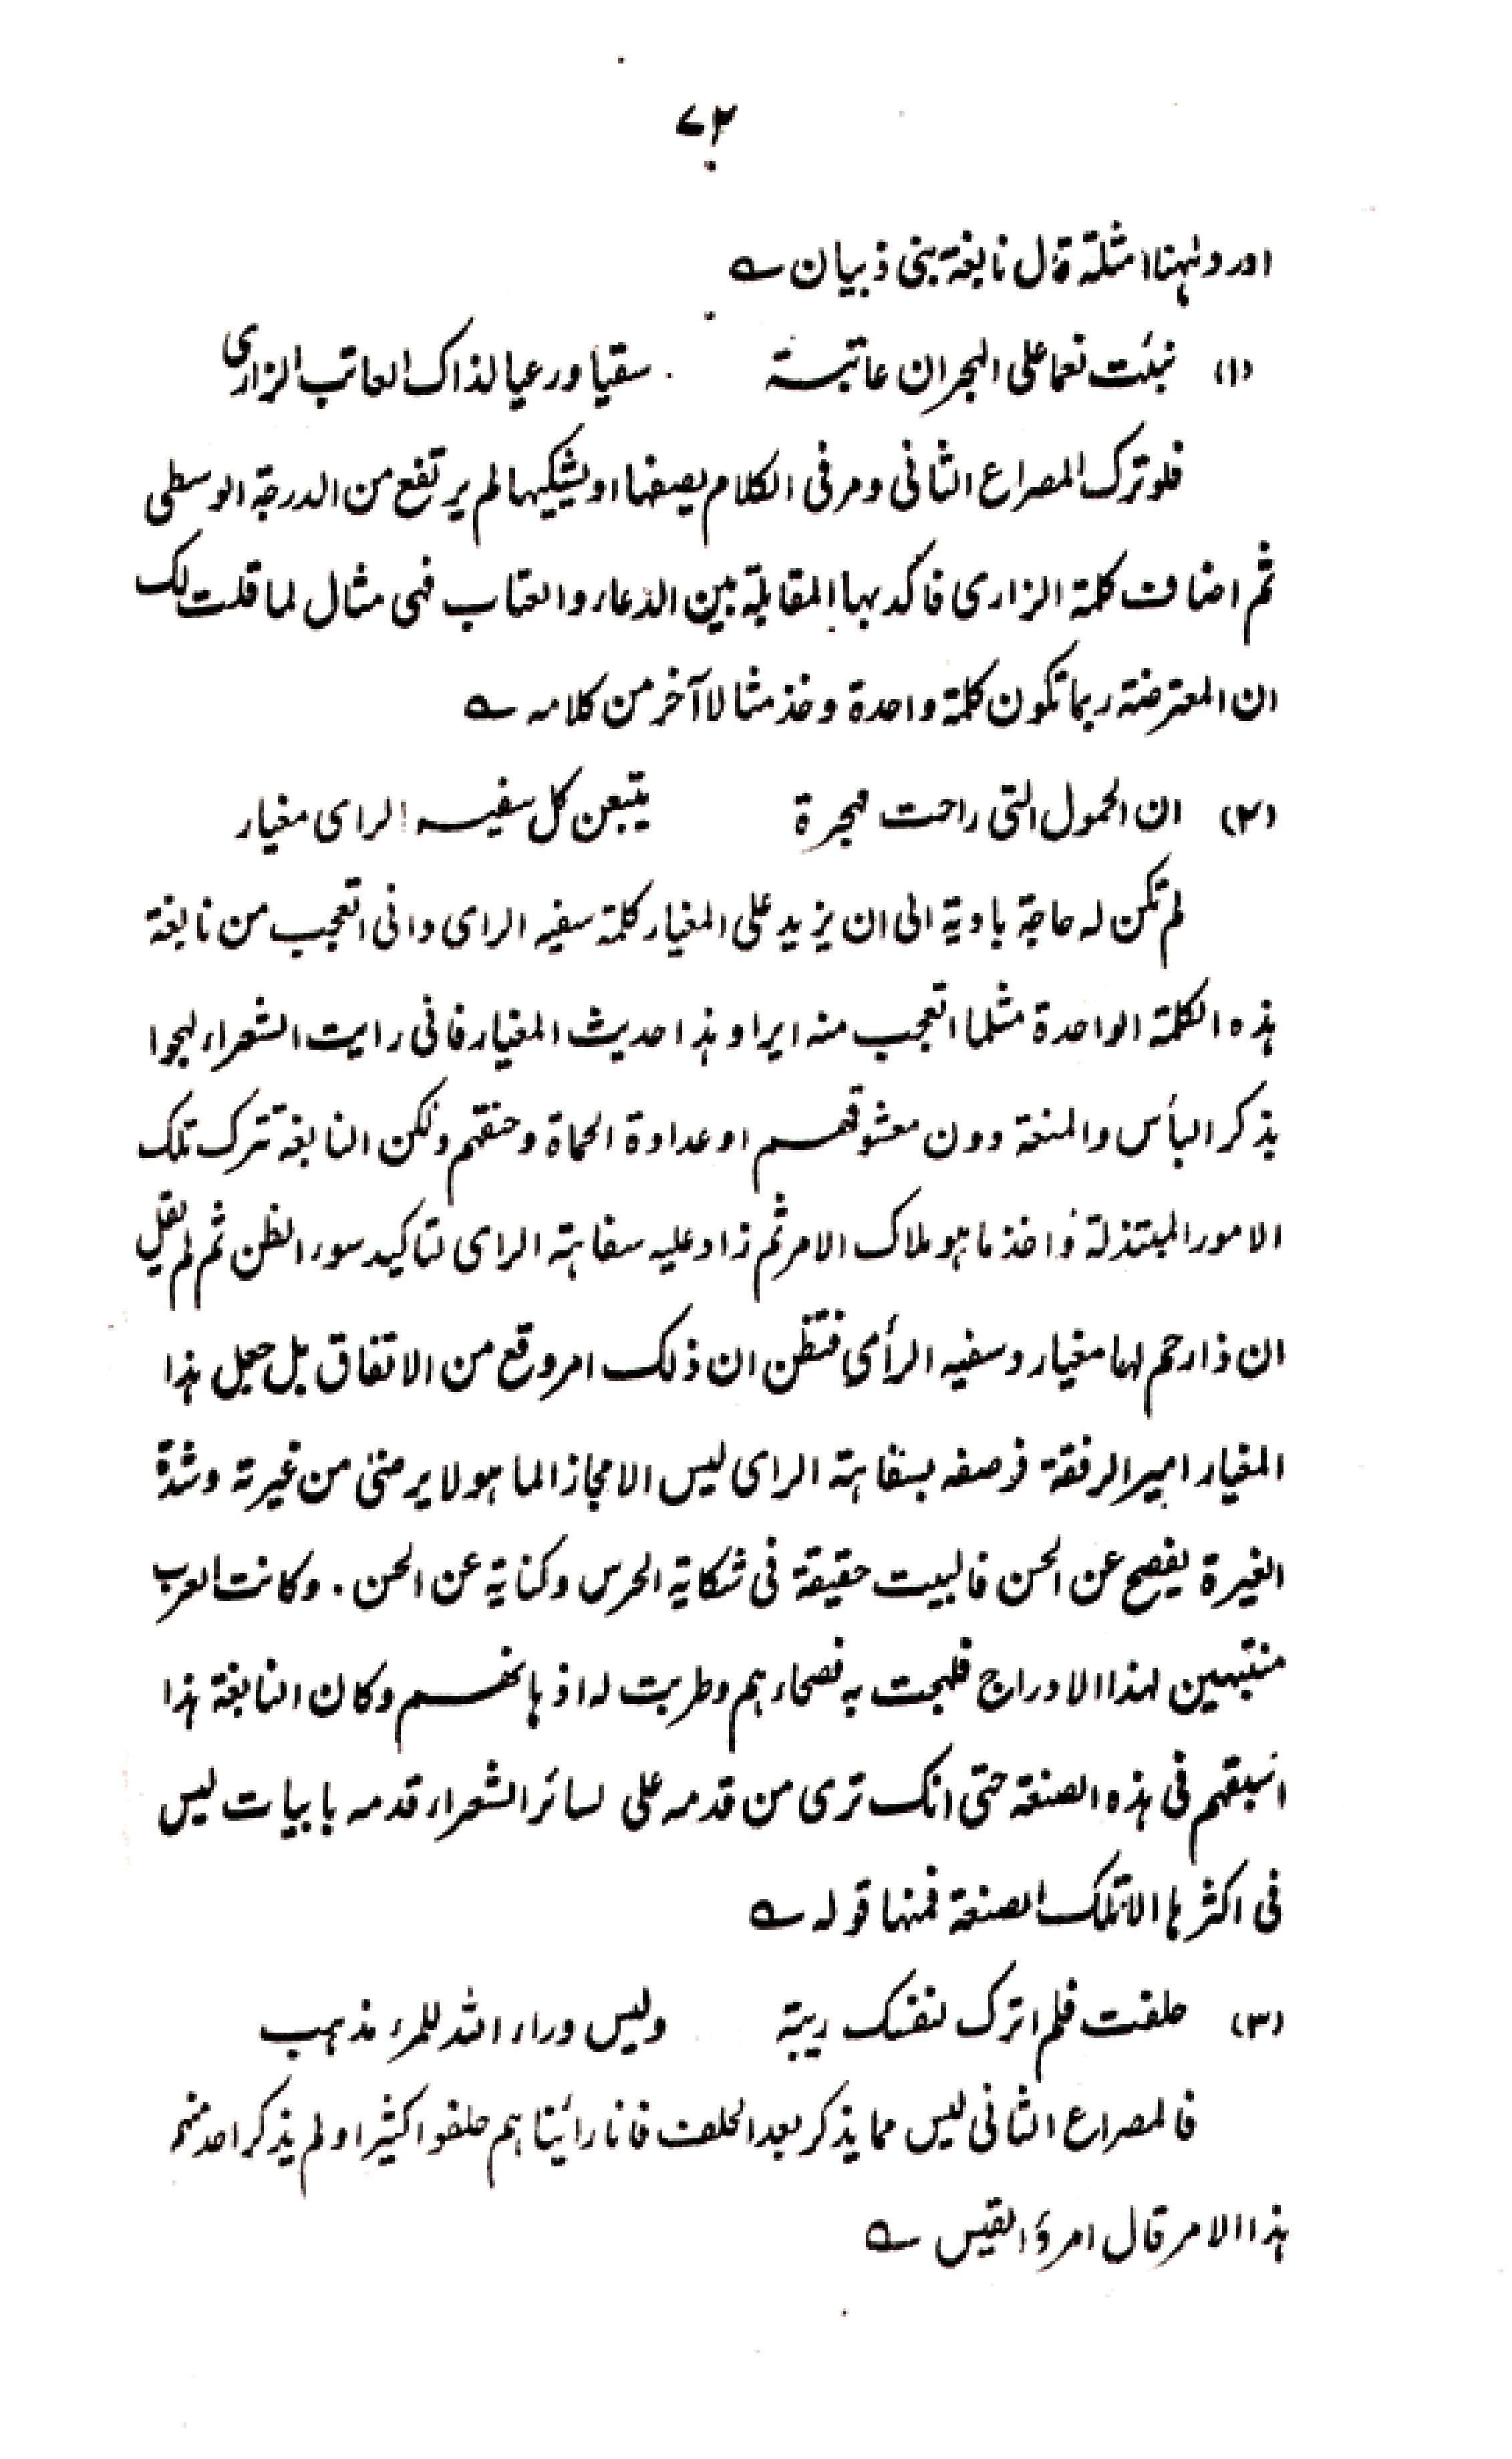 ٧٢
اورد ولهنا امثلة قال نابغة بنی ذبیان ے
(١) نبئت نعما علی الهجران عاتبة سقیا ورعیا لذاک العاتب الزاری
فلو ترک المصراع الثانی ومر فی الکلام یصفها او یشکیها لم یرتفع من الدرجة الوسطی
ثم اضاف کلمة الزاری فاکد بها المقابلة بین الدعاء والعتاب فهی مثال لما قلت لک
ان المعترضة ربما تکون کلمة واحدة وخذ مثالا آخر من کلامه ے
(٢) ان الحمول التی راحت مهجرة یتبعن کل سفیه الرای مغیار
لم تکن له حاجة بادیة الی ان یزید علی المغیار کلمة سفیه الرای وانی اتعجب من نابغة
هذه الکلمة الواحدة مثلما اتعجب منه ایراد هذا حدیث المغیار فانی رایت الشعراء لهجوا
بذکر البأس والمنعة دون معشوقهم او عداوة الحماة وحنقهم ولکن النابغة ترک تلک
الامور المبتذلة واخذ ما هو ملاک الامر ثم زاد علیه سفاهة الرای لتاکید سوء الظن ثم لم یقل
ان ذا رحم لها مغیار وسفیه الرأی فتظن ان ذلک امر وقع من الاتفاق بل جعل هذا
المغیار امیر الرفقة فوصفه بسفاهة الرای لیس الا مجازا لما هو لا یرضی من غیرته وشدة
الغیرة یفصح عن الحسن فالبیت حقیقة فی شکایة الحرس وکنایة عن الحسن. وکانت العرب
منتبهین لهذا الادراج فلهجت به فصحاءهم وطربت له اذهانهم وکان النابغة هذا
اسبقهم فی هذه الصنعة حتی انک تری من قدمه علی لسائر الشعراء قدمه بابیات لیس
فی اکثرها الا تلک الصنعة فمنها قوله ے
(٣) حلفت فلم اترک لنفسک ریبة ولیس وراء الله للمرء مذهب
فالمصراع الثانی لیس مما یذکر بعد الحلف فانا رأیناهم حلفوا کثیرا ولم یذکر احد منهم
هذا الامر قال امرؤ القیس ے